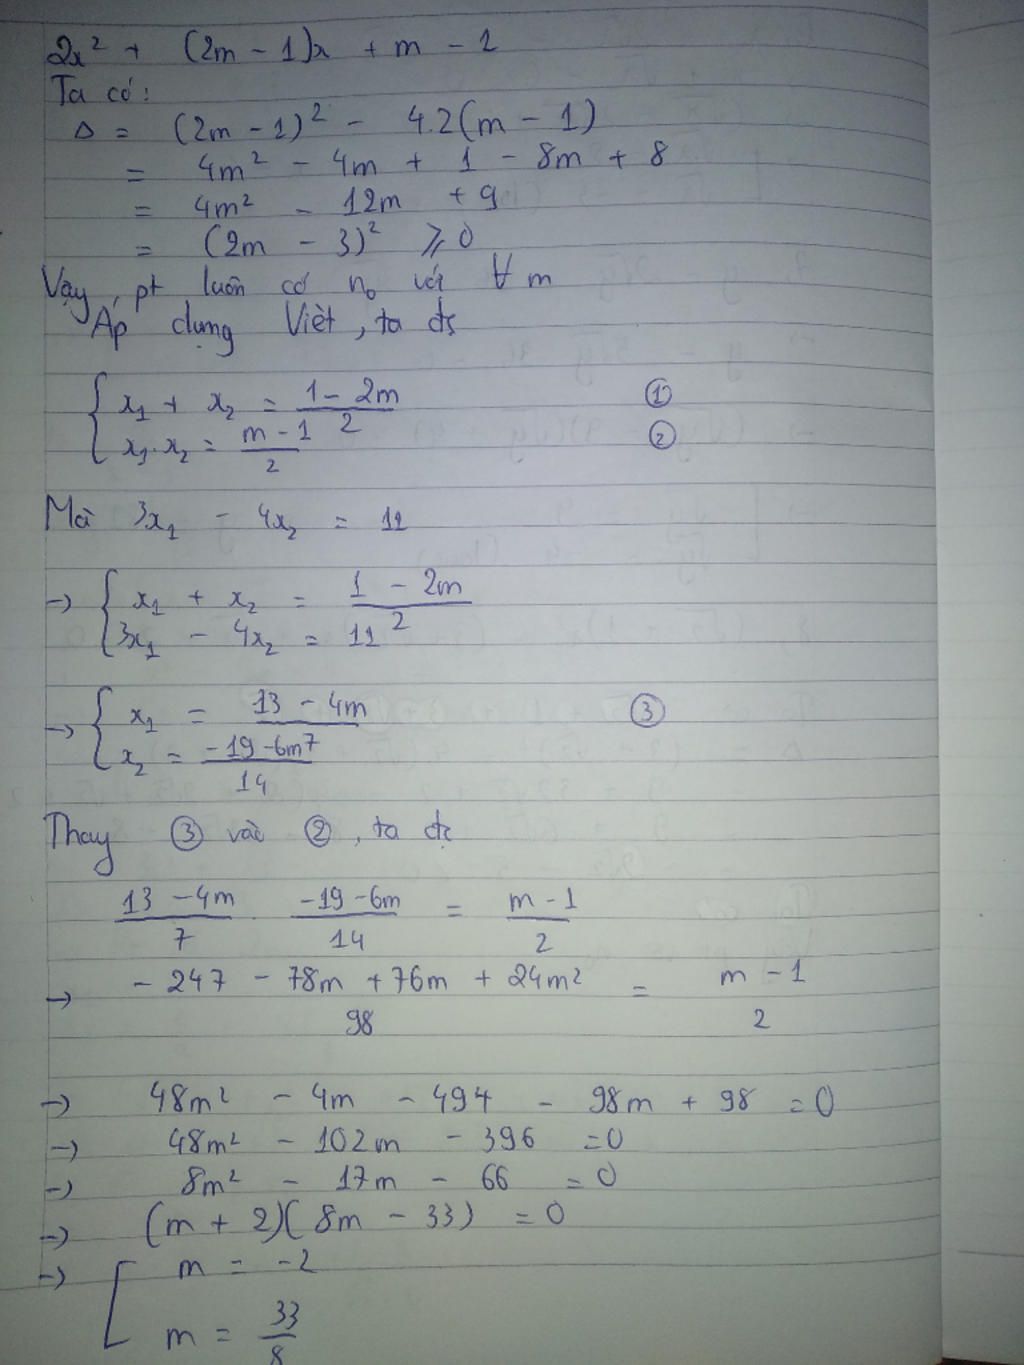 2x² + (2m - 1)x + m - 1
Ta có:
Δ = (2m - 1)² - 4.2(m - 1)
= 4m² - 4m + 1 - 8m + 8
= 4m² - 12m + 9
= (2m - 3)² ⩾ 0
Vậy, pt luôn có n₀ với ∀ m
Áp dụng Vièt, ta đc
{ x₁ + x₂ = (1 - 2m)/2 ①
x₁.x₂ = (m - 1)/2 ②
Mà 3x₁ - 4x₂ = 11
→ { x₁ + x₂ = (1 - 2m)/2
3x₁ - 4x₂ = 11
→ { x₁ = (13 - 4m)/7 ③
x₂ = (-19 - 6m)/14
Thay ③ vào ②, ta đc
(13 - 4m)/7 . (-19 - 6m)/14 = (m - 1)/2
→ (-247 - 78m + 76m + 24m²)/98 = (m - 1)/2
→ 48m² - 4m - 494 - 98m + 98 = 0
→ 48m² - 102m - 396 = 0
→ 8m² - 17m - 66 = 0
→ (m + 2)(8m - 33) = 0
→ [ m = -2
m = 33/8